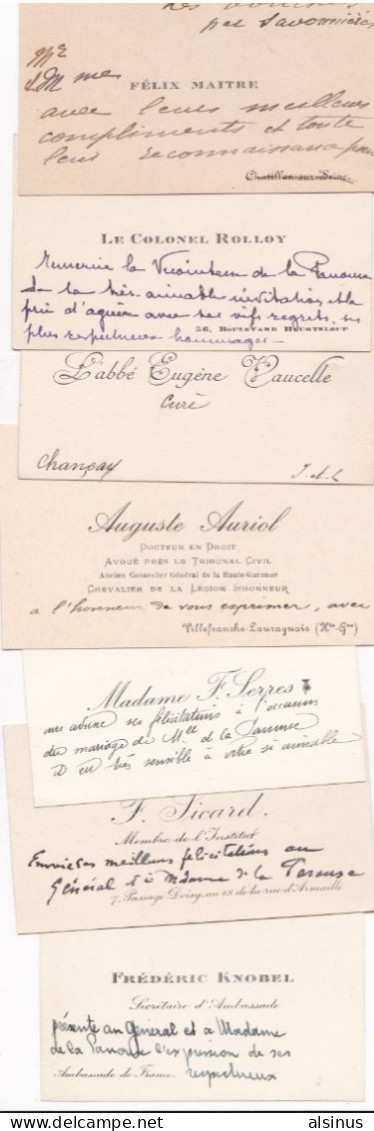 par Savonnières
Mr
& Mmes
FÉLIX MAITRE
avec leurs meilleurs
compliments et toute
leur reconnaissance pour
Chatillon-sur-Seine
LE COLONEL ROLLOY
Remercie la Vicomtesse de la Panouse
de sa très aimable invitation et la
prie d'agréer avec ses vifs regrets, ses
56, BOULEVARD HEURTELOUP
plus respectueux hommages -
L'abbé Eugène Vaucelle
Curé
Chançay
I.-et-L.
Auguste Auriol
DOCTEUR EN DROIT
AVOUÉ PRÈS LE TRIBUNAL CIVIL
Ancien Conseiller Général de la Haute-Garonne
CHEVALIER DE LA LÉGION D'HONNEUR
a l'honneur de vous exprimer, avec
Villefranche-Lauraguais (Hte-Gne)
Madame F. Serres
ses félicitations à l'occasion
du mariage de Mlle de la Panouse
et est très sensible à votre si aimable
F. Sicard.
Membre de l'Institut
Envoie ses meilleures félicitations au
Général et à Madame de la Panouse
7, Passage Doisy, au 18 de la rue d'Armaillé
FRÉDÉRIC KNOBEL
Secrétaire d'Ambassade
présente au Général et à Madame
de la Panouse l'expression de ses
Ambassade de France. respectueux
delcampe.net
alsinus